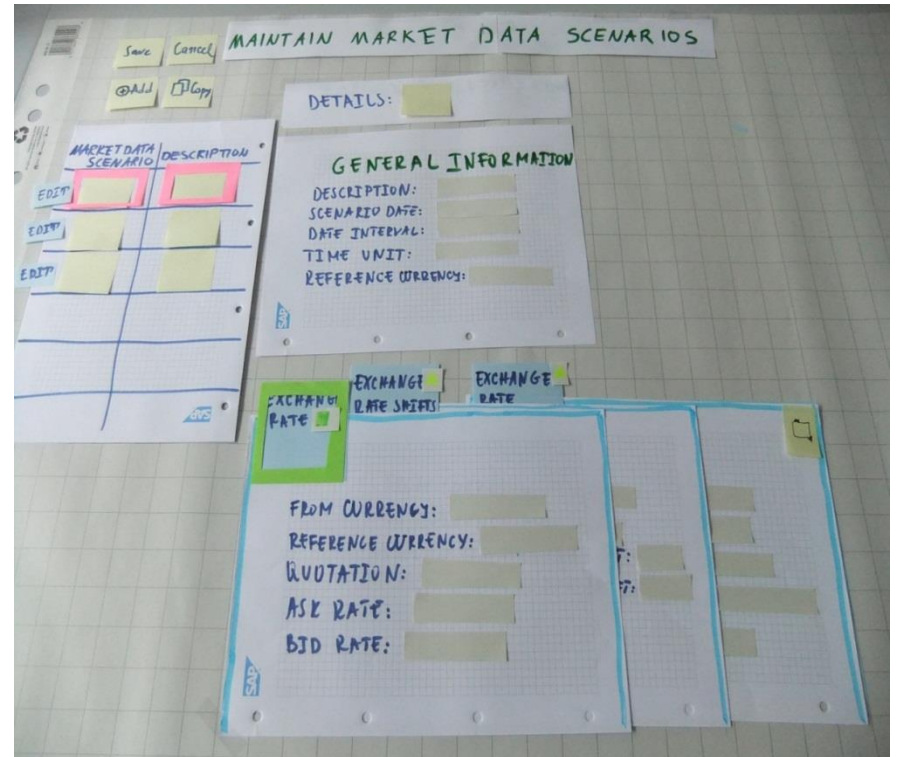 MAINTAIN MARKET DATA SCENARIOS
Save Cancel
Add Copy
DETAILS:
MARKET DATA SCENARIO
DESCRIPTION
EDIT
EDIT
EDIT
GENERAL INFORMATION
DESCRIPTION:
SCENARIO DATE:
DATE INTERVAL:
TIME UNIT:
REFERENCE CURRENCY:
SAP
SAP
EXCHANGE
RATE
EXCHANGE
RATE SHIFTS
EXCHANGE
RATE
FROM CURRENCY:
REFERENCE CURRENCY:
QUOTATION:
ASK RATE:
BID RATE:
T:
FT:
SAP